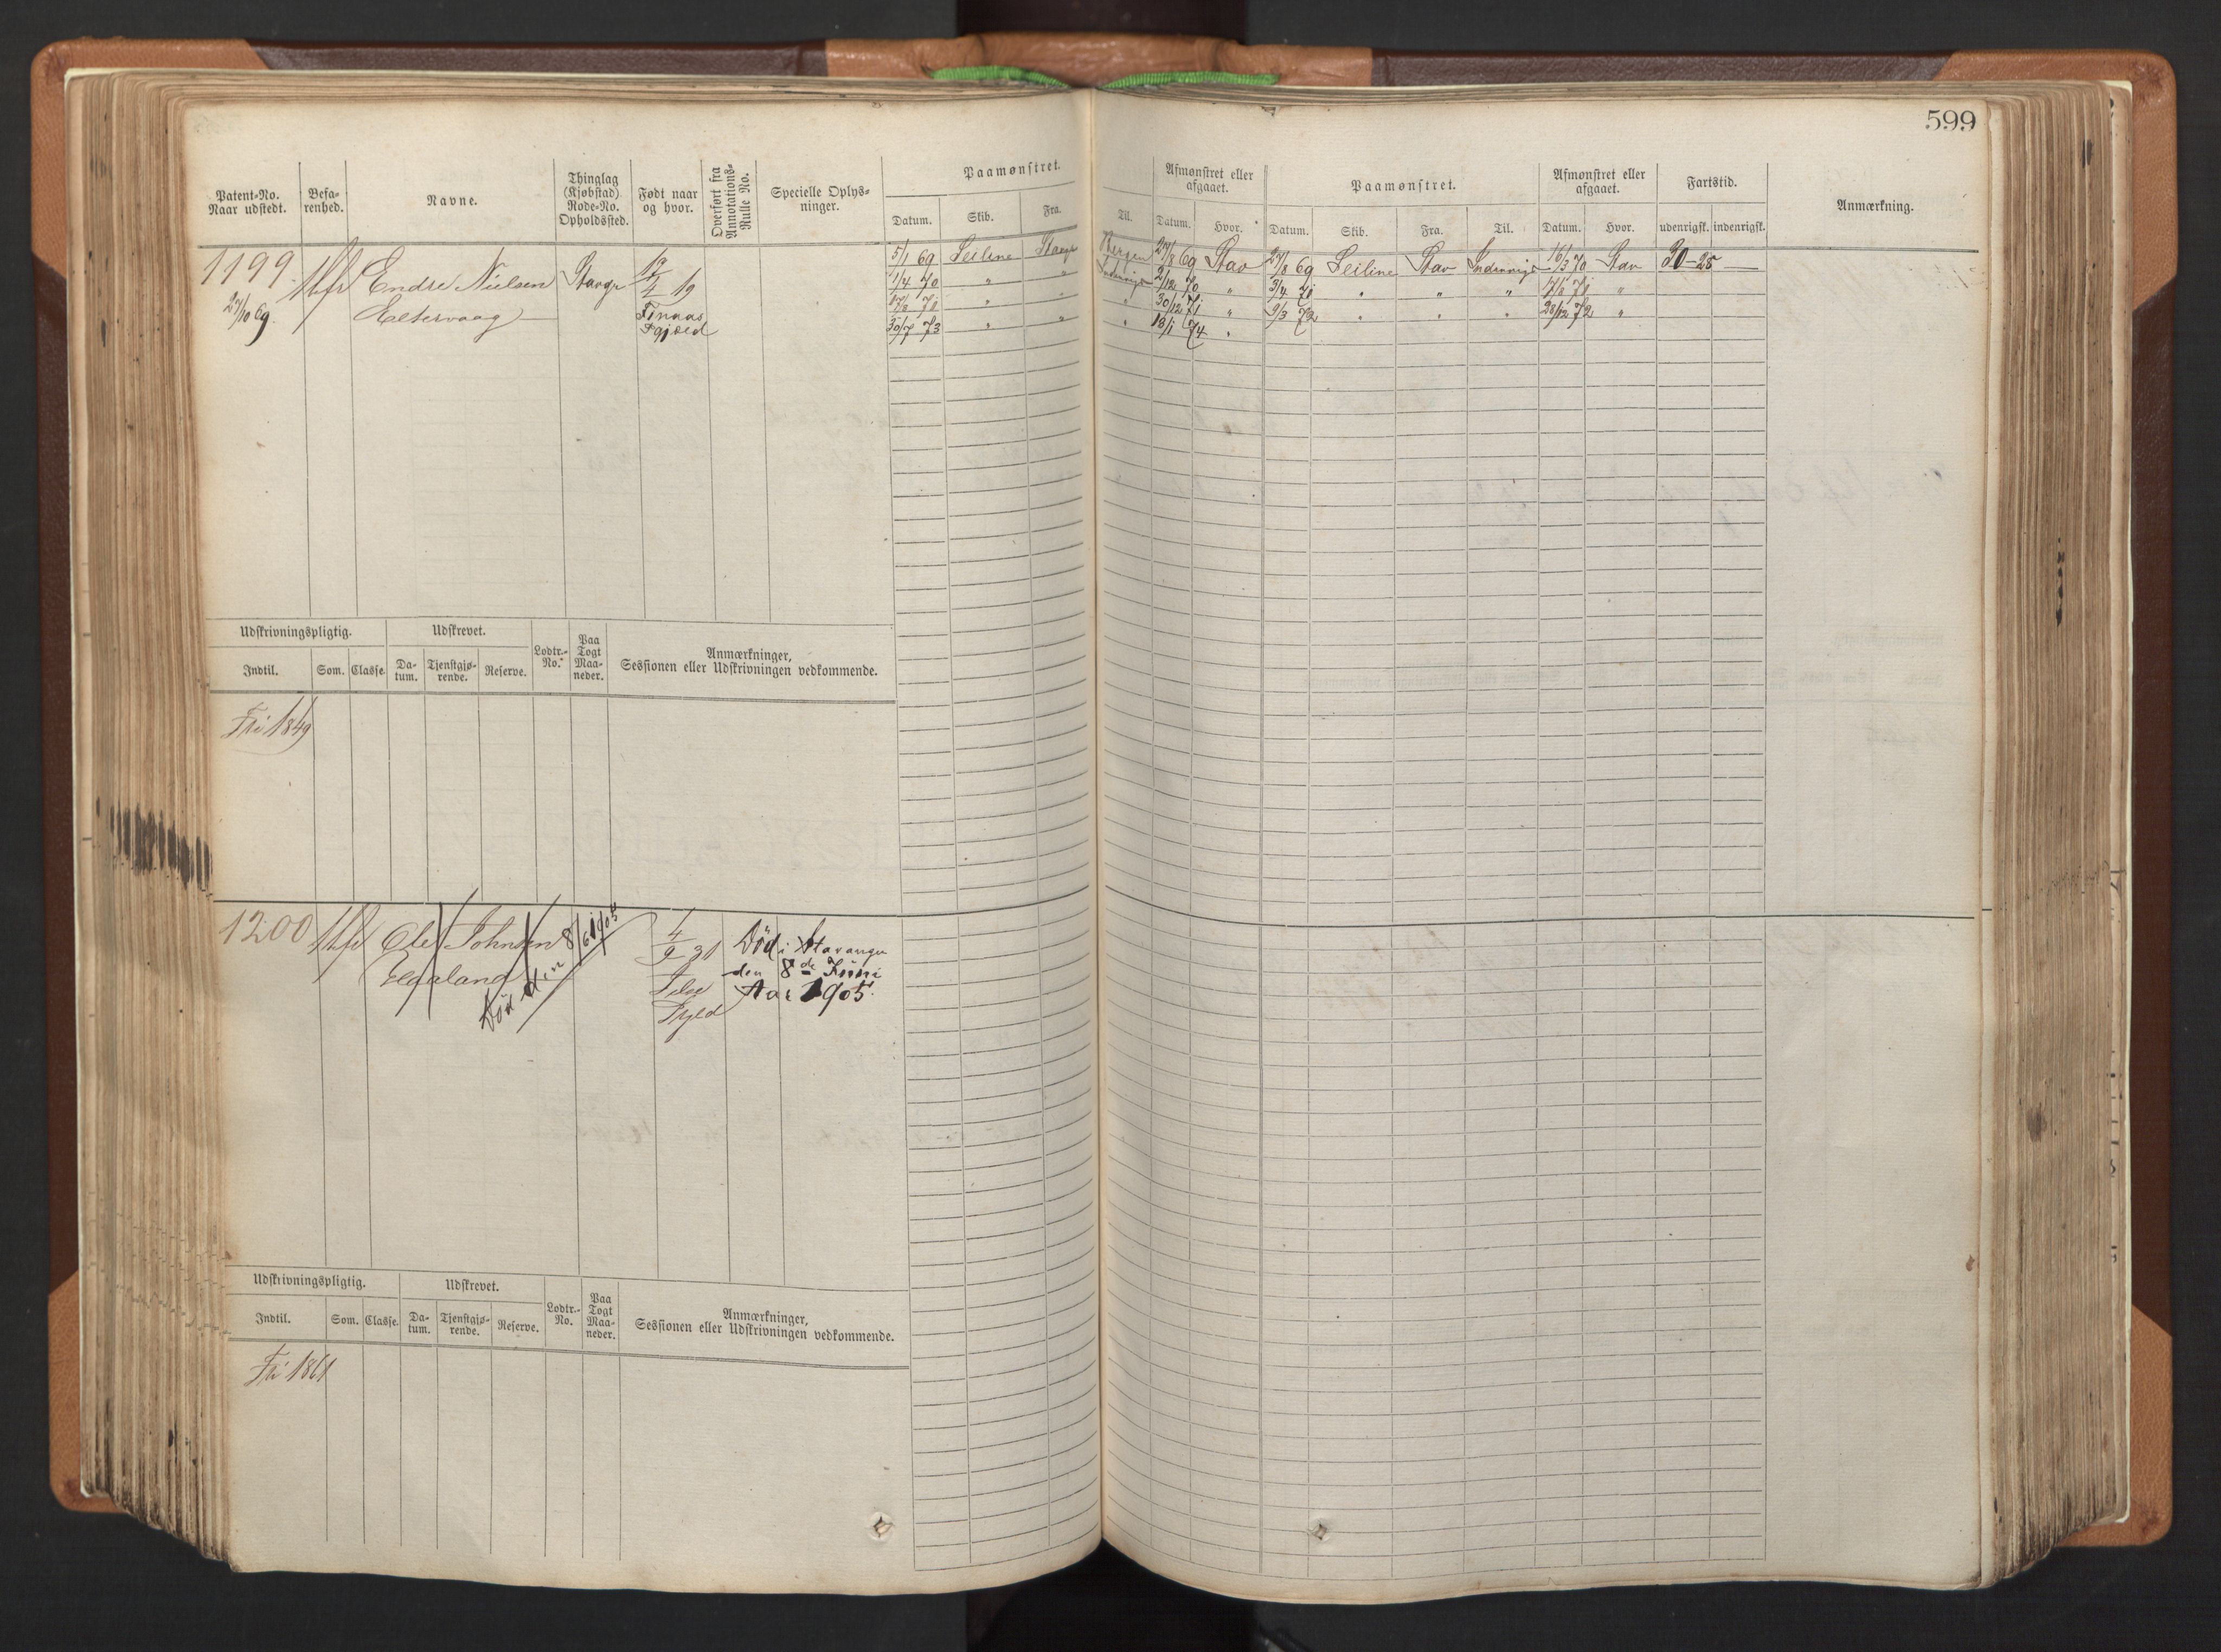 599
Patent-No.
Naar udstedt.
Befa-
renhed.
Navne.
Thinglag
(Kjøbstad)
Rode-No.
Opholdssted.
Født naar
og hvor.
Overført fra
Annotations-
Rulle No.
Specielle Oplys-
ninger.
Paamønstret.
Datum. Skib. Fra. Til.
Afmønstret eller
afgaaet.
Datum. Hvor.
Paamønstret.
Datum. Skib. Fra. Til.
Afmønstret eller
afgaaet.
Datum. Hvor.
Fartstid.
udenrigsk. indenrigsk.
Anmærkning.
1199 Endre Nielsen Stavgr
27/10 69.
Finnaas
5/1 69 Seiline Stavgr Bergen 27/8 69 Stav 27/8 69 Seiline Stav Indenrigs 16/3 70 Stav 30-25
1/4 70 " " Indenrigs 2/12 70 " 3/4 71 " " " "
" " " 30/12 71 " 9/3 72 " " " 28/12 72 "
30/7 73 " " " 13/1 74 "
Udskrivningspligtig.
Indtil. Som. Classe.
Udskrevet.
Da-
tum.
Tjenstgjø-
rende.
Reserve.
Lodtr.-
No.
Paa
Togt
Maa-
neder.
Anmærkninger,
Sessionen eller Udskrivningen vedkommende.
Fri 1849
1200 Ole Johnsen
Død den 8/6 1905
4/9 31
Død i Stavanger
den 8de Juni
Aar 1905.
Udskrivningspligtig.
Indtil. Som. Classe.
Udskrevet.
Da-
tum.
Tjenstgjø-
rende.
Reserve.
Lodtr.-
No.
Paa
Togt
Maa-
neder.
Anmærkninger,
Sessionen eller Udskrivningen vedkommende.
Fri 1861